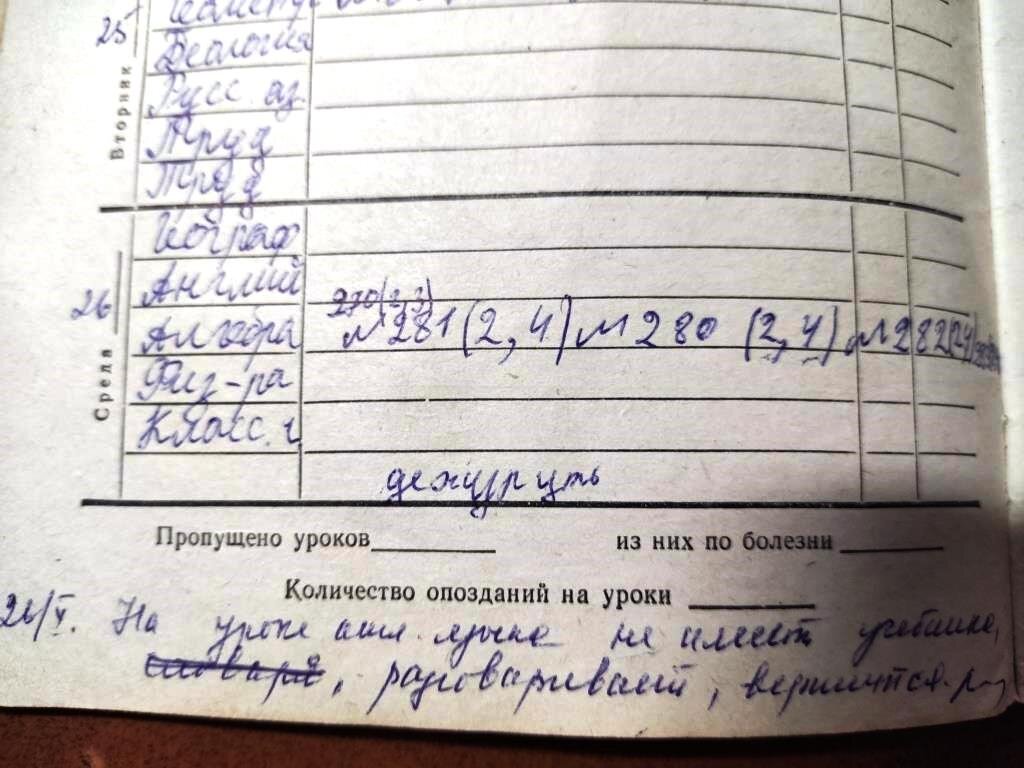 25
Геометр
Вторник
Биология
Русс. яз.
Труд
Труд
Географ
26
Среда
Англий
270(2,3)
Алгебра №281 (2,4) №280 (2,4) №282(2,4)
Физ-ра
Класс. ч
дежурить
Пропущено уроков из них по болезни
Количество опозданий на уроки
26/V. На уроке англ. языка не имеет учебника,
словаря, разговаривает, вертится.